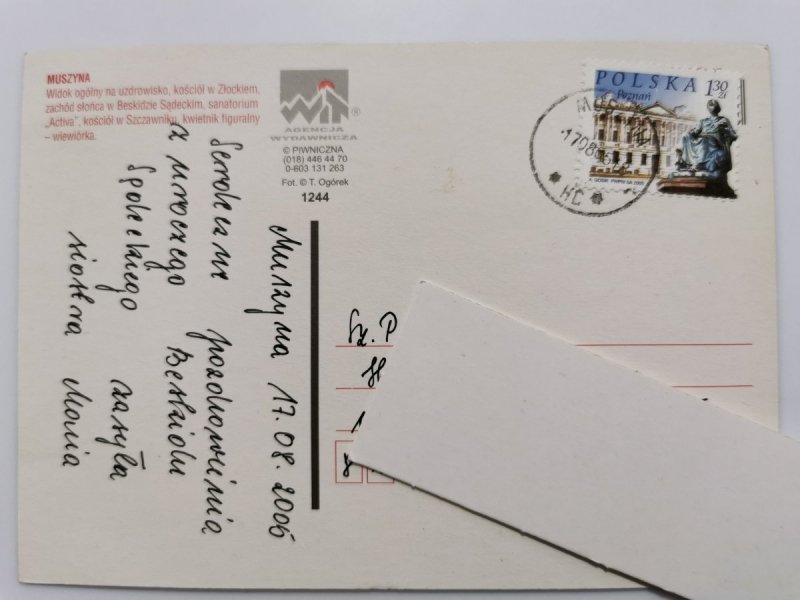 MUSZYNA
Widok ogólny na uzdrowisko, kościół w Złockiem,
zachód słońca w Beskidzie Sądeckim, sanatorium
„Activa”, kościół w Szczawniku, kwietnik figuralny
– wiewiórka.
WiT®
AGENCJA
WYDAWNICZA
© PIWNICZNA
(018) 446 44 70
0-603 131 263
Fot. © T. Ogórek
1244
POLSKA
130 zł
Poznań
Muszyna 17.08.2006
Serdeczne pozdrowienia
z uroczego Beskidu
Sądeckiego zasyła
siostra Monia
Sz. P
H